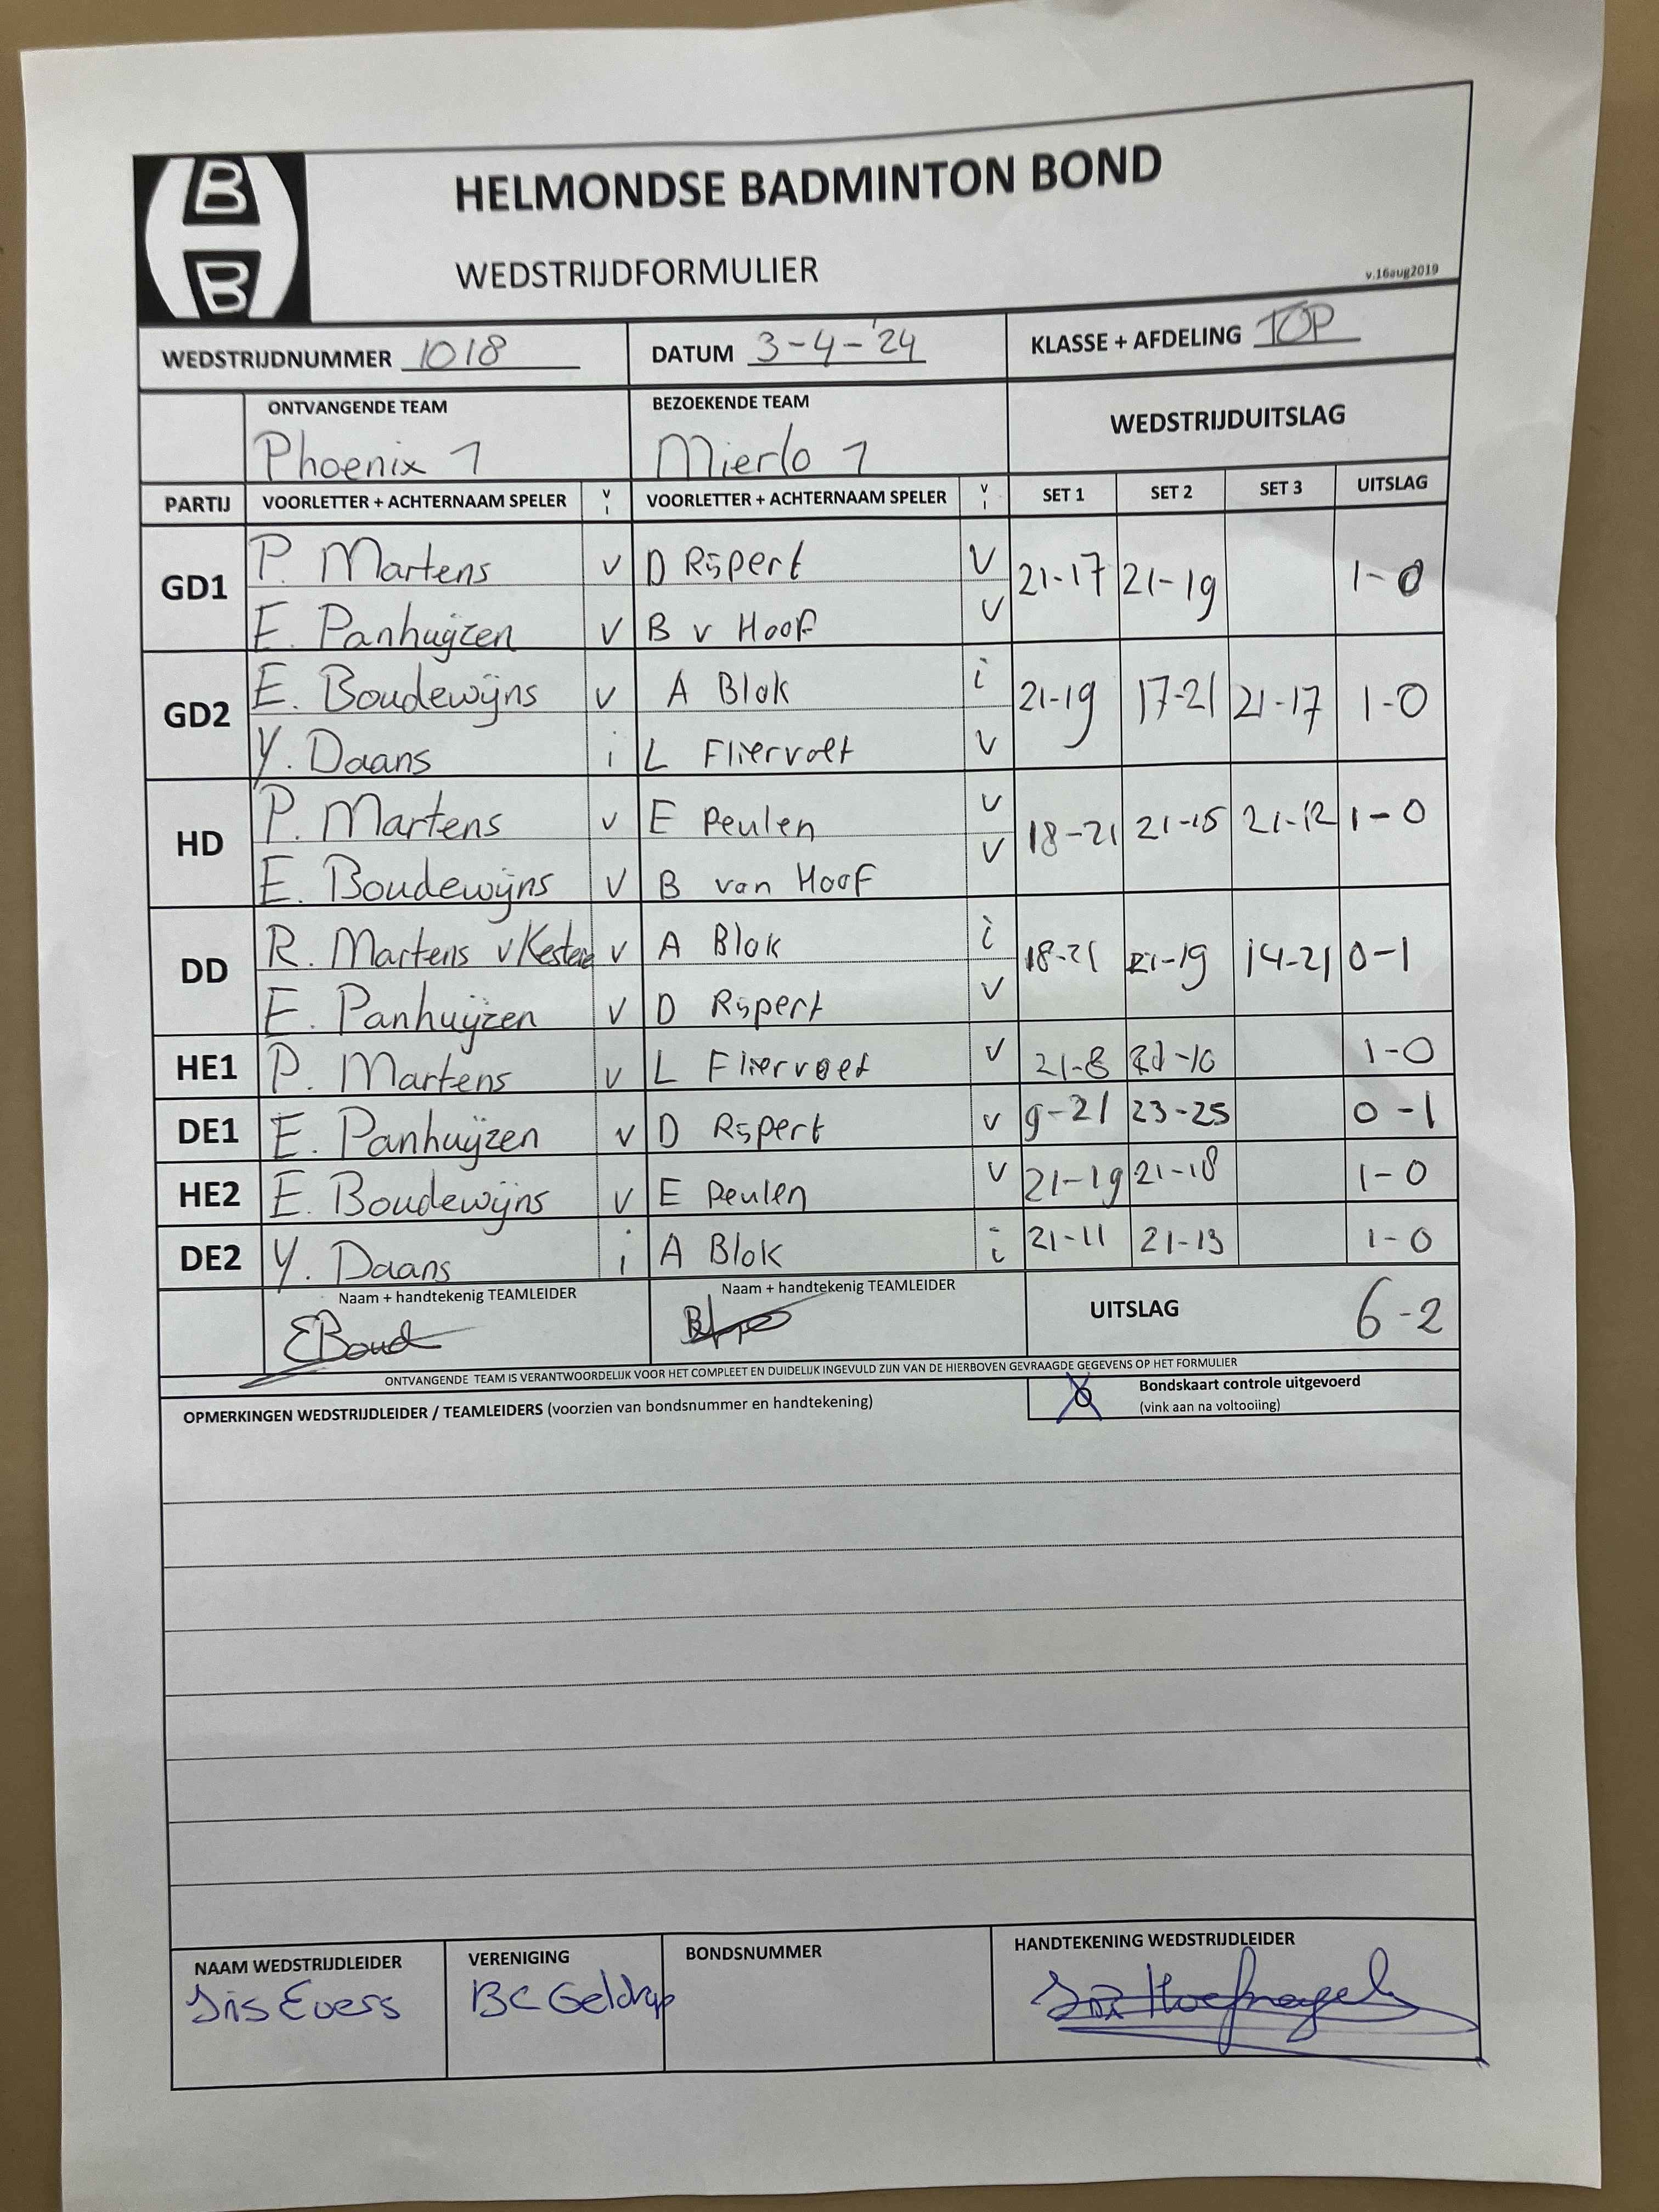 B
B
HELMONDSE BADMINTON BOND
WEDSTRIJDFORMULIER
v.16aug2019
WEDSTRIJDNUMMER 1018 DATUM 3-4-'24 KLASSE + AFDELING TOP
ONTVANGENDE TEAM BEZOEKENDE TEAM WEDSTRIJDUITSLAG
Phoenix 1 Mierlo 1
PARTIJ VOORLETTER + ACHTERNAAM SPELER V I VOORLETTER + ACHTERNAAM SPELER V I SET 1 SET 2 SET 3 UITSLAG
GD1 P. Martens v D Rijpert v 21-17 21-19 1-0
E. Panhuijzen v B v Hoof v
GD2 E. Boudewijns v A Blok i 21-19 17-21 21-17 1-0
Y. Daans i L Fliervoet v
HD P. Martens v E Peulen v 18-21 21-15 21-12 1-0
E. Boudewijns v B van Hoof v
DD R. Martens v Kesteren v A Blok i 18-21 21-19 14-21 0-1
E. Panhuijzen v D Rijpert v
HE1 P. Martens v L Fliervoet v 21-8 21-10 1-0
DE1 E. Panhuijzen v D Rijpert v 9-21 23-25 0-1
HE2 E. Boudewijns v E Peulen v 21-19 21-18 1-0
DE2 Y. Daans i A Blok i 21-11 21-13 1-0
Naam + handtekenig TEAMLEIDER Naam + handtekenig TEAMLEIDER UITSLAG 6-2
EBoud
ONTVANGENDE TEAM IS VERANTWOORDELIJK VOOR HET COMPLEET EN DUIDELIJK INGEVULD ZIJN VAN DE HIERBOVEN GEVRAAGDE GEGEVENS OP HET FORMULIER
OPMERKINGEN WEDSTRIJDLEIDER / TEAMLEIDERS (voorzien van bondsnummer en handtekening) Bondskaart controle uitgevoerd
(vink aan na voltooiing)
NAAM WEDSTRIJDLEIDER VERENIGING BONDSNUMMER HANDTEKENING WEDSTRIJDLEIDER
Iris Evers BC Geldrop Hoefnagels